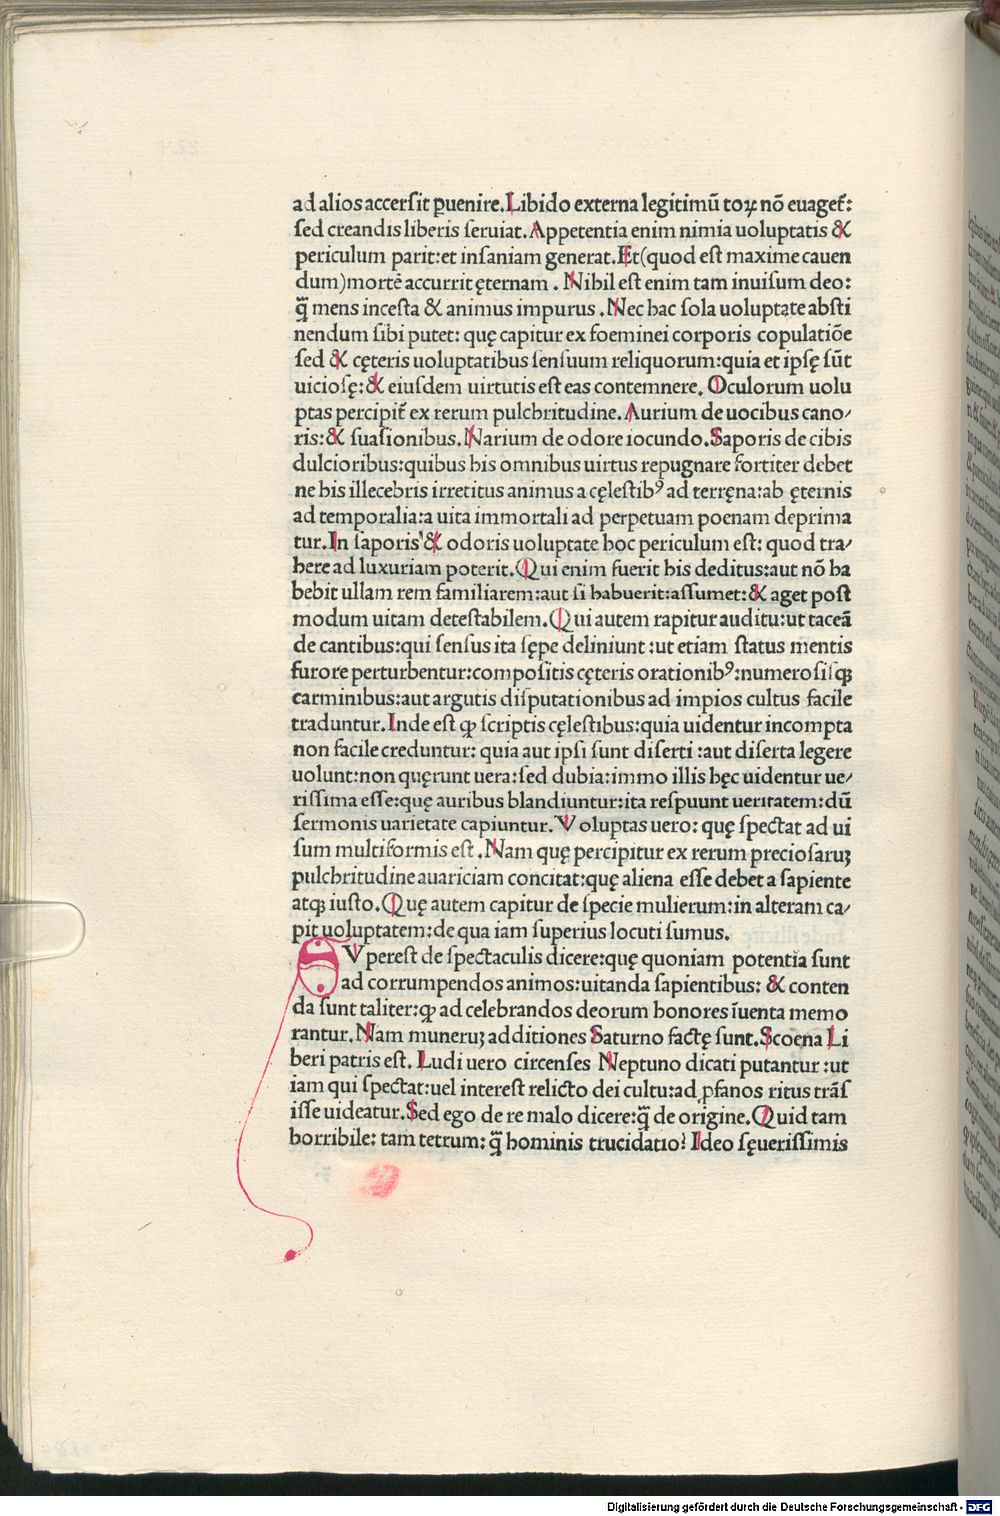 ad alios accersit ꝑuenire. Libido externa legitimũ toꝝ nõ euaget᷑:
sed creandis liberis seruiat. Appetentia enim nimia uoluptatis &
periculum parit: et insaniam generat. Et (quod est maxime cauen
dum) mortẽ accurrit ęternam. Nihil est enim tam inuisum deo:
q̃ mens incesta & animus impurus. Nec hac sola uoluptate absti
nendum sibi putet: quę capitur ex foeminei corporis copulatiõe
sed & cęteris uoluptatibus sensuum reliquorum: quia et ipsę sũt
uiciosę: & eiusdem uirtutis est eas contemnere. Oculorum uolu
ptas percipit᷑ ex rerum pulchritudine. Aurium de uocibus cano⸗
ris: & suasionibus. Narium de odore iocundo. Saporis de cibis
dulcioribus: quibus his omnibus uirtus repugnare fortiter debet
ne his illecebris irretitus animus a cęlestibꝰ ad terręna: ab ęternis
ad temporalia: a uita immortali ad perpetuam poenam deprima
tur. In saporis & odoris uoluptate hoc periculum est: quod tra⸗
here ad luxuriam poterit. Qui enim fuerit his deditus: aut nõ ha
bebit ullam rem familiarem: aut si habuerit: assumet: & aget post
modum uitam detestabilem. Qui autem rapitur auditu: ut taceã
de cantibus: qui sensus ita sępe deliniunt: ut etiam status mentis
furore perturbentur: compositis cęteris orationibꝰ: numerosisqꝫ
carminibus: aut argutis disputationibus ad impios cultus facile
traduntur. Inde est ꝙ scriptis cęlestibus: quia uidentur incompta
non facile creduntur: quia aut ipsi sunt diserti: aut diserta legere
uolunt: non quęrunt uera: sed dubia: immo illis hęc uidentur ue⸗
rissima esse: quę auribus blandiuntur: ita respuunt ueritatem: dũ
sermonis uarietate capiuntur. Voluptas uero: quę spectat ad ui
sum multiformis est. Nam quę percipitur ex rerum preciosaruꝫ
pulchritudine auariciam concitat: quę aliena esse debet a sapiente
atqꝫ iusto. Quę autem capitur de specie mulierum: in alteram ca⸗
pit uoluptatem: de qua iam superius locuti sumus.
SVperest de spectaculis dicere: quę quoniam potentia sunt
ad corrumpendos animos: uitanda sapientibus: & conten
da sunt taliter: ꝙ ad celebrandos deorum honores ĩuenta memo
rantur. Nam muneruꝫ additiones Saturno factę sunt. Scoena Li
beri patris est. Ludi uero circenses Neptuno dicati putantur: ut
iam qui spectat: uel interest relicto dei cultu: ad ꝓfanos ritus trãs
isse uideatur. Sed ego de re malo dicere: q̃ de origine. Quid tam
horribile: tam tetrum: q̃ hominis trucidatio? Ideo sęuerissimis
Digitalisierung gefördert durch die Deutsche Forschungsgemeinschaft - DFG